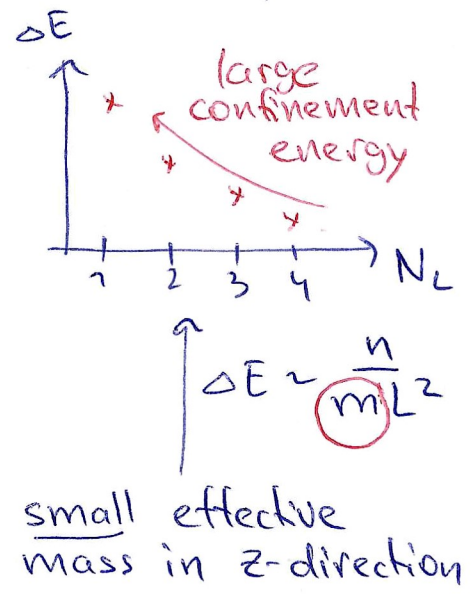 ΔE
large
confinement
energy
1 2 3 4 N_L
ΔE ~ n/mL²
small effective
mass in z-direction